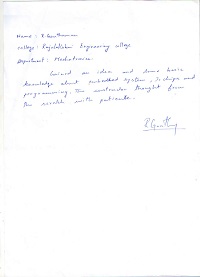 Name : R.Gowthaman
college : Rajalakshmi Engineering college
Department : Mechatronics
Gained an idea and some basic
knowledge about embedded system, IC chips and
programming. The instructor thought from
the scratch with patients.
R.Gowtha